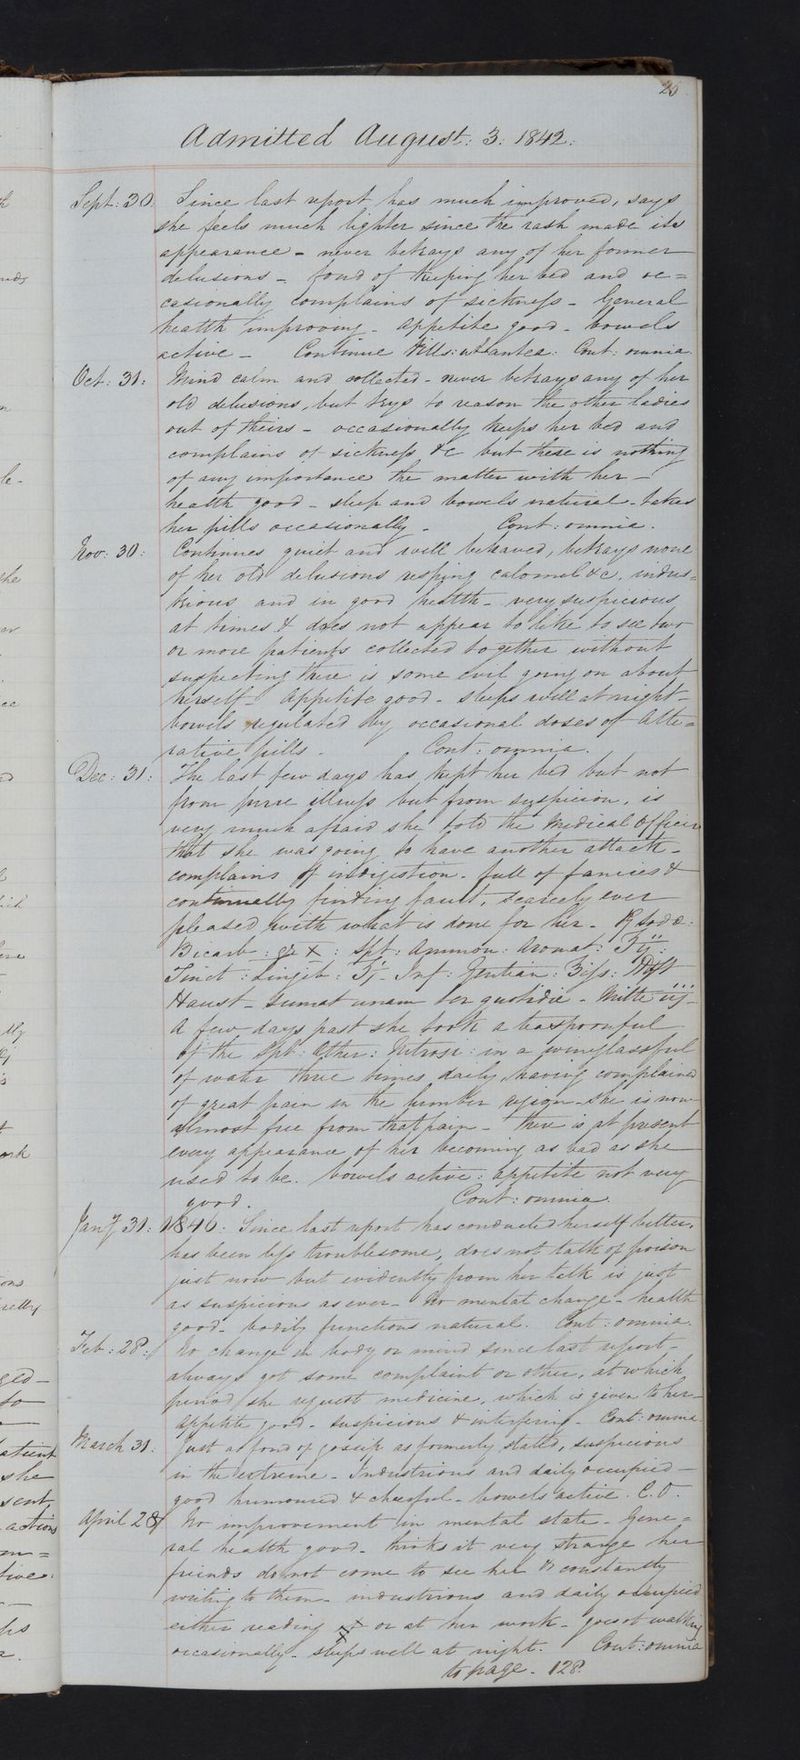 25
Admitted August: 3: 1842:
Sept: 30. Since last report has much improved, says
she feels much lighter since the rash made its
appearance - never betrays any of her former
delusions - fond of keeping her bed and oc=
casionally complains of sickness - General
health improving - appetite good - bowels
active - Continue Pills: Cont: omnia.
Oct: 31: Mind calm and collected - never betrays any of her
old delusions, but trys to reason the other ladies
out of theirs - occasionally keeps her bed and
complains of sickness &c but there is nothing
of any importance the matter with her -
health good - sleep and bowels natural - takes
her pills occasionally - Cont: omnia.
Nov: 30: Continues quiet and well behaved, betrays none
of her old delusions resping calomel &c, indus=
trious and in good health - very suspicious
at times & does not appear to like to see two
or more patients collected together without
suspecting there is some evil going on about
herself - Appetite good - sleeps well at night -
bowels regulated by occasional doses of alte=
rative pills - Cont: omnia.
Dec: 31: The last few days has kept her bed but not
from pure illness but from suspicion, is
very much afraid she told the Medical Officer
that she was going to have another attack -
complains of indigestion - full of fancies &
continually finding fault, scarcely ever
pleased with what is done for her - R Sodæ:
Bicarb: gr X: Spt: Ammon: Aromat:
Tinct: Zingib: Inf: Gentian:
Haust - Sumat unam ter quotidie - Mitte iij -
A few days past she took a teaspoonful
of the Spt: Æther: Nitrosi: in a wineglassful
of water three times daily, having complained
of great pain in the lumbar region - she is now
almost free from that pain - there is at present
every appearance of her becoming as bad as she
used to be. bowels active: appetite not very
good. Cont: omnia.
Jany 31: 1846: Since last report has conducted herself better,
has been less troublesome, does not talk of poison
just now but evidently from her talk is just
as suspicious as ever - No mental change - health
good - bodily functions natural. Cont: omnia.
Feb: 28: No change in body or mind since last report -
always got some complaint or other, at which
period she request medicine, which is given to her -
appetite good - suspicious & interfering - Cont: omnia.
March 31: Just as fond of gossip as formerly stated, suspicious
in the extreme - Industrious and daily occupied -
good humoured & cheerful - bowels active. C.O.
April 28 No improvement in mental state - Gene=
ral health good - thinks it very strange her
friends do not come to see her is constantly
writing to them - industrious and daily occupied
either reading or at her work - goes out walking
occasionally - sleeps well at night. Cont: omnia
to page - 128.